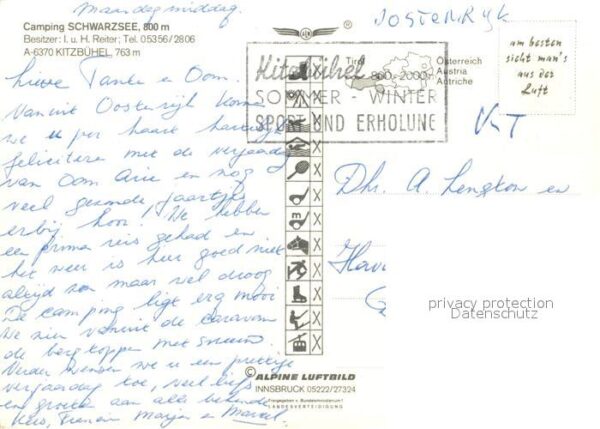 Maandagmiddag.
Camping SCHWARZSEE, 800 m
Besitzer: I. u. H. Reiter; Tel. 05356/2806
A-6370 KITZBÜHEL, 763 m
Lieve Tante en Oom.
Vanuit Oostenrijk komen
we u per kaart hartelijk
feliciteren met de verjaardag
van Oom Arie en nog
veel gezonde jaartjes
erbij hoor! We hebben
een prima reis gehad en
het weer is hier goed niet
altijd zon maar wel droog
De camping ligt erg mooi
We zien vanuit de caravan
de bergtoppen met sneeuw.
Verder wensen we u een prettige
verjaardag toe, veel liefs
en groeten aan alle bekende
Marjan en Marcel
OOSTENRIJK
Tirol
Österreich
Austria
Autriche
am besten
sicht man's
aus der
Luft
Kitzbühel
800-2000m
SOMMER - WINTER
SPORT UND ERHOLUNG
Dhr. A. en
privacy protection
Datenschutz
© ALPINE LUFTBILD
INNSBRUCK 05222/27324
Freigegeben v. Bundesministerium f.
LANDESVERTEIDIGUNG